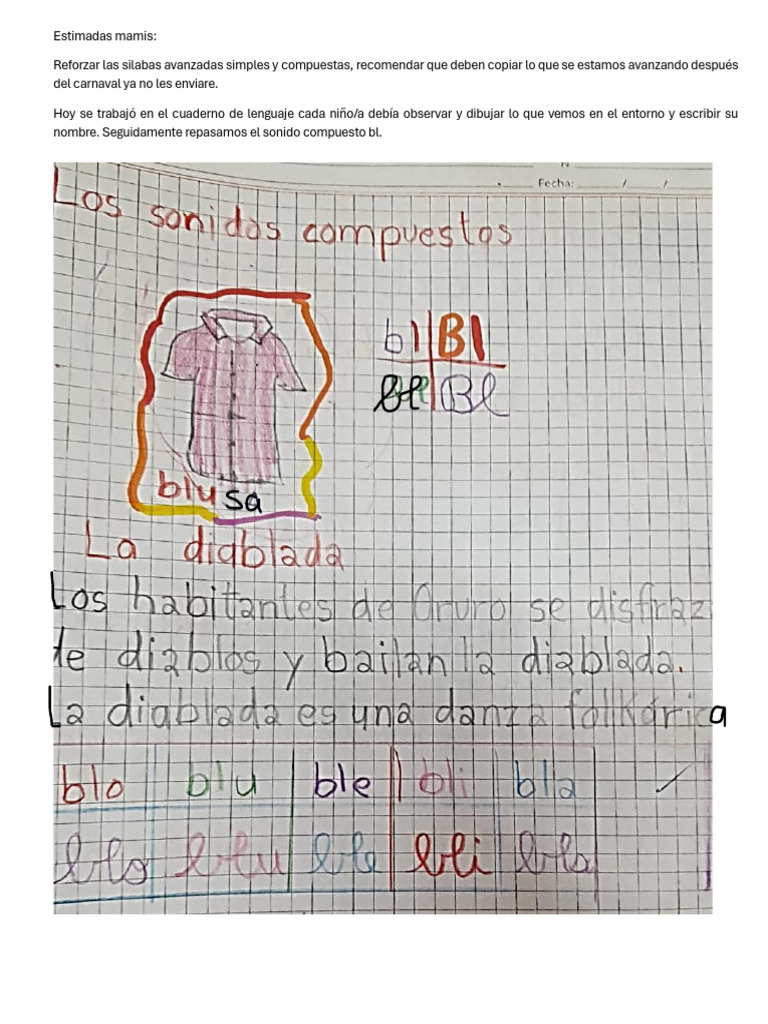 Estimadas mamis:
Reforzar las silabas avanzadas simples y compuestas, recomendar que deben copiar lo que se estamos avanzando después
del carnaval ya no les enviare.
Hoy se trabajó en el cuaderno de lenguaje cada niño/a debía observar y dibujar lo que vemos en el entorno y escribir su
nombre. Seguidamente repasamos el sonido compuesto bl.
Fecha: / /
Los sonidos compuestos
bl Bl
bl Bl
blusa
La diablada
Los habitantes de Oruro se disfraz
de diablos y bailan la diablada.
La diablada es una danza folklórica
blo blu ble bli bla
blo blu ble bli bla